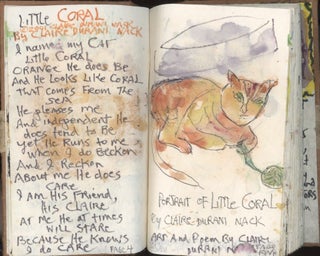 Little CORAL
By CLAIRE DURANI NACK
I name my CAT
Little CORAL
ORANGE He does Be
And He Looks Like CORAL
THAT comes From THE
SEA
He pleases me
And independent He
does tend to Be
Yet He Runs to me
when I do Beckon
And I Reckon
About me He does
CARE
I Am His FRIEND,
His CLAIRE
AT me He at times
will STARE
BecAuse He Knows
I do CARE
PORTRAIT OF Little CORAL
By CLAIRE DURANI NACK
ART And Poem By CLAIRE
DURANI N